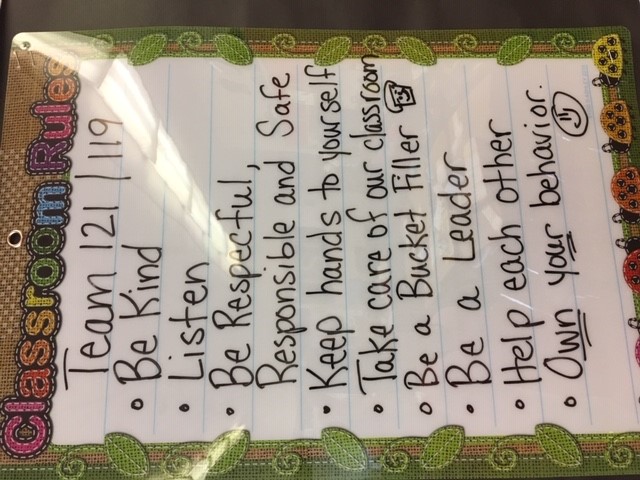 Classroom Rules
Team 121/119
• Be Kind
• Listen
• Be Respectful,
Responsible and Safe
• Keep hands to yourself
• Take care of our classroom
• Be a Bucket Filler
• Be a Leader
• Help each other
• Own your behavior.